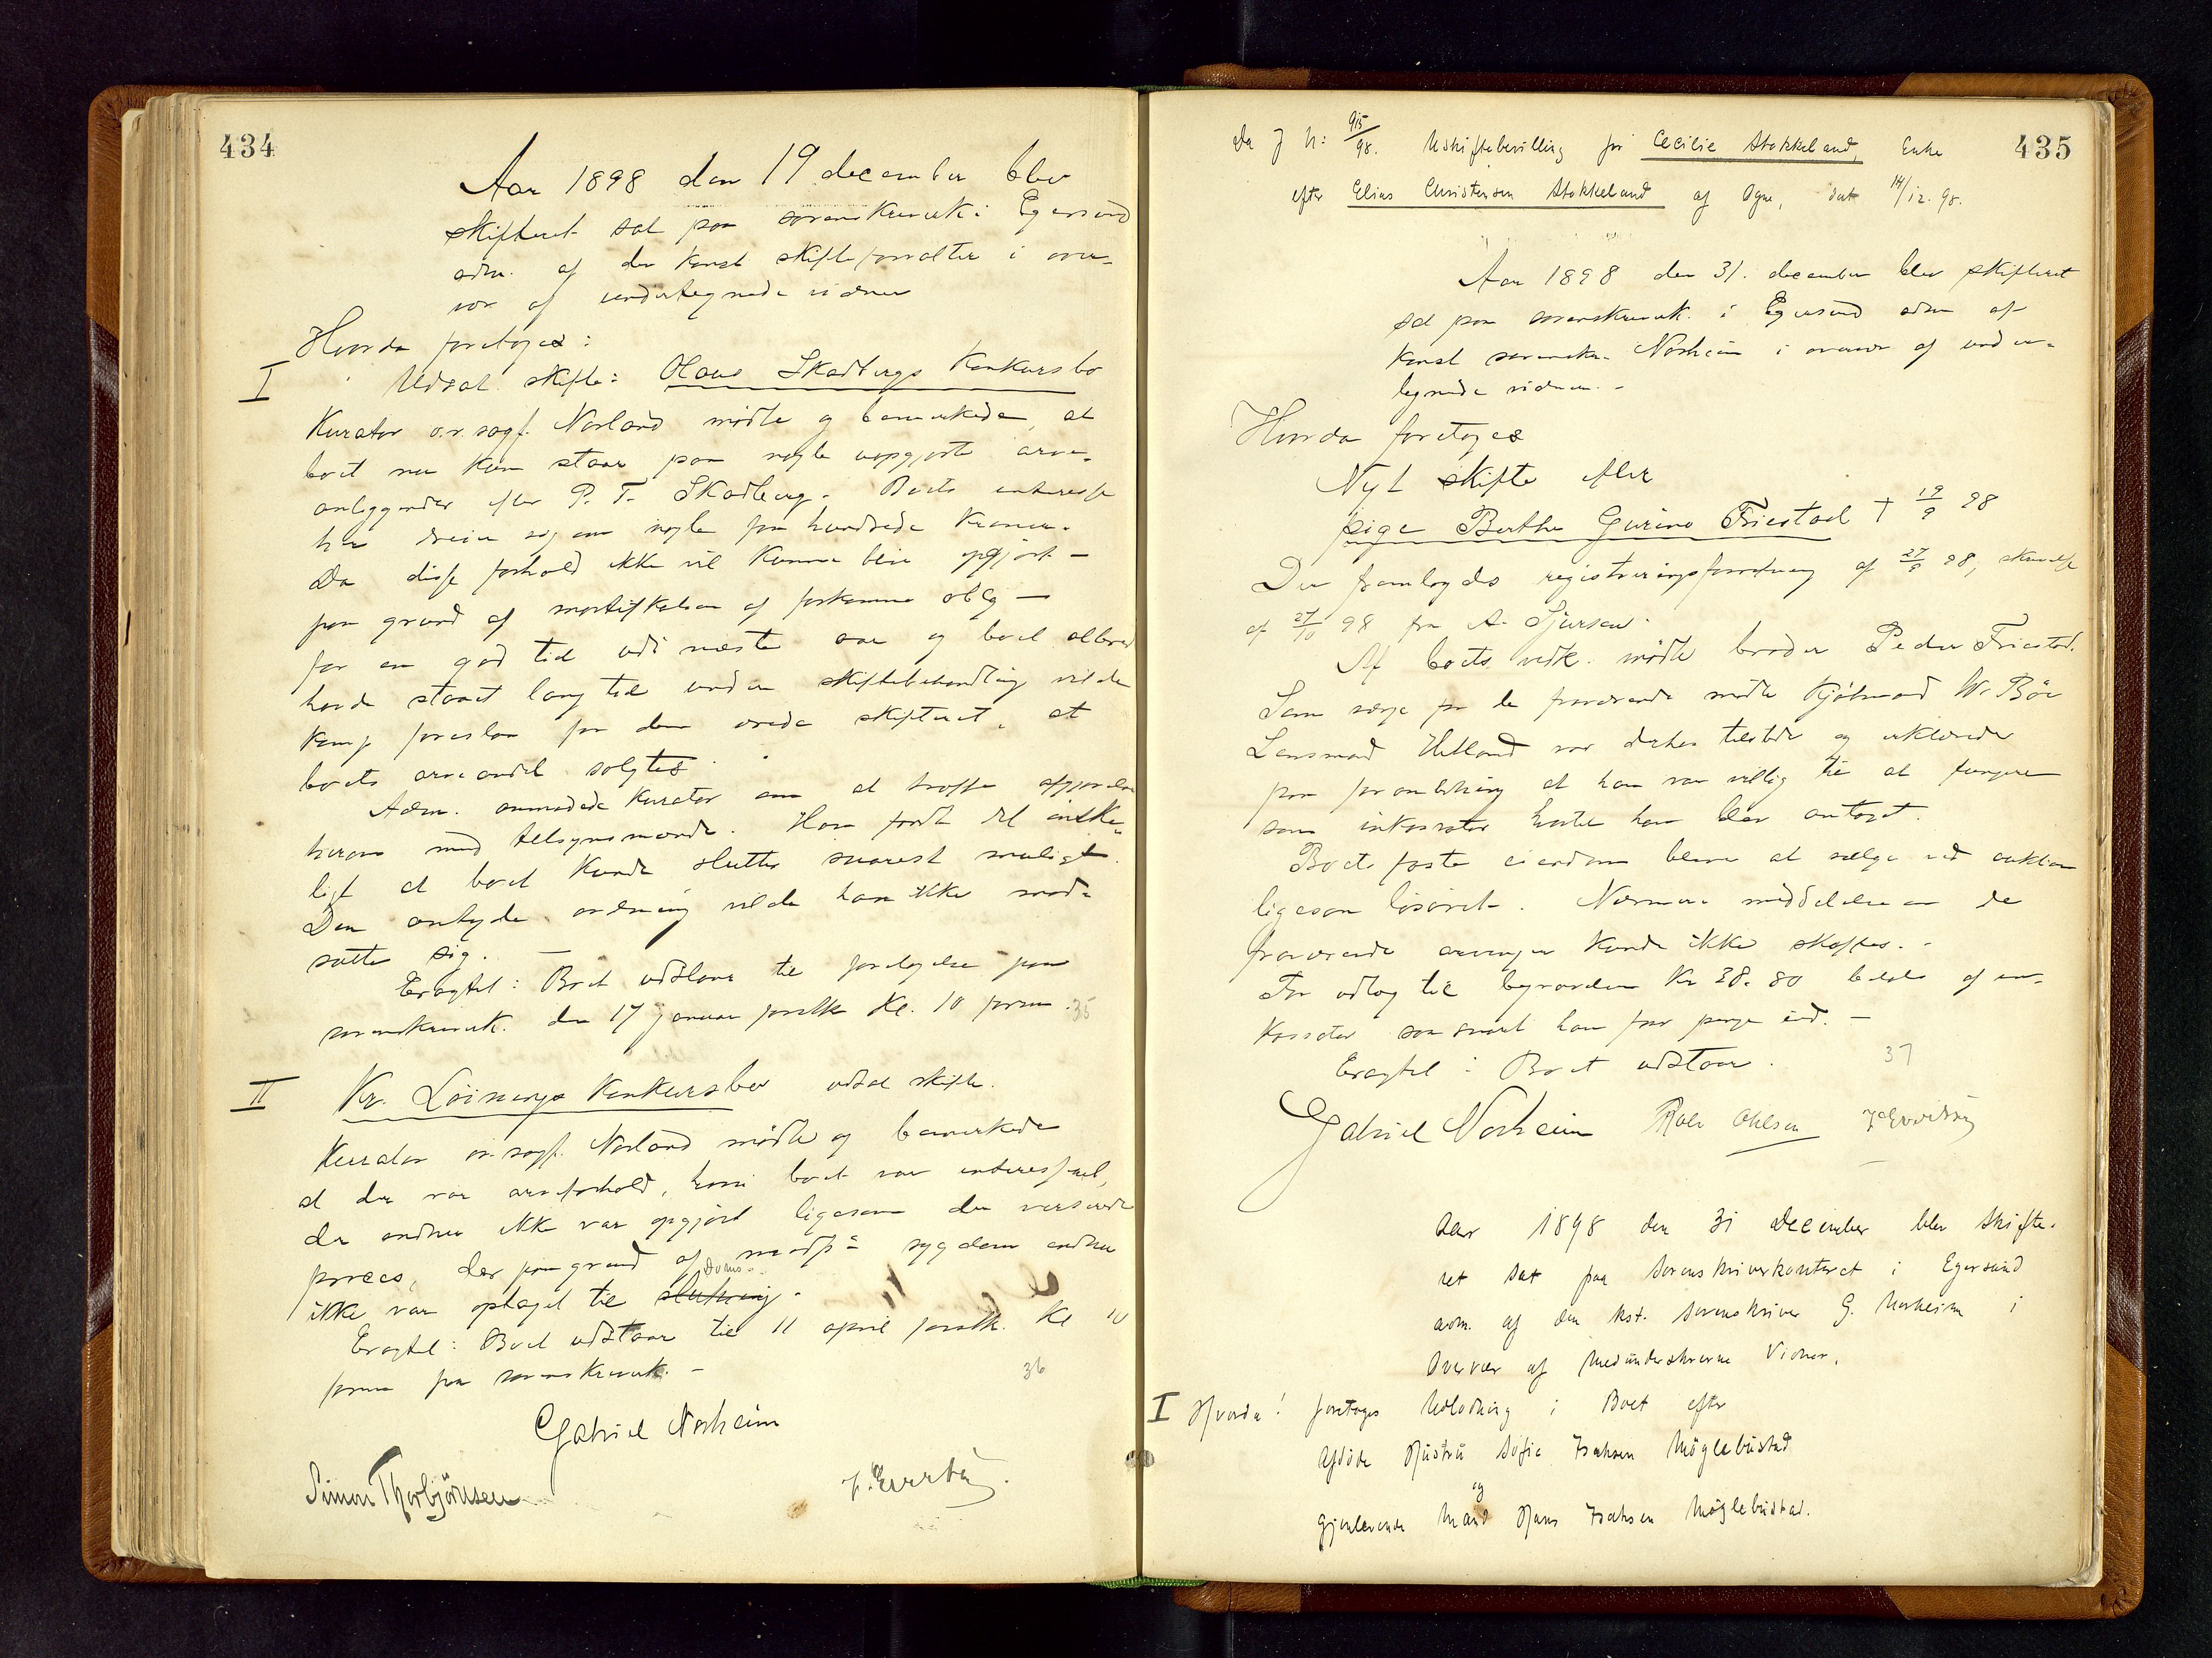 434
Aar 1898 den 19 december blev
skifteret sat paa sorenskriverk. i Egersund
adm. af den konst skifteforvalter i over-
vær af undertegnede vidner
Hvorda foretoges:
I Udsat skifte: Hans Skadbergs konkursbo
Kurator o.r.sagf. Norland mødte og bemerkede, at
boet nu kun staar paa nogle uopgjorte arve-
anliggender efter P. T. Skadberg. Boets interesse
her dreier sig om nogle faa hundrede kroner.
Da disse forhold ikke vil kunne blive opgjort –
paa grund af mortifikation af forkomne oblg –
før en god tid udi næste aar og boet allerede
havde staaet lang tid under skiftebehandling vilde
komp foreslaa for den ærede skifteret, at
boets arveandel solgtes.
Adm. anmodede kurator om at træffe afgjørelse
herom med tilsynsmænd. Han fandt det ønske-
ligt at boet kunde sluttes snarest muligt.
Den antydede ordning vilde han ikke mod-
sætte sig. –
Eragtet: Boet udstaar til foretagelse paa
sorenskriverk. den 17 januar førstk Kl. 10 form. 35
II Kr. Løinings Konkursbo udsat skifte.
Kurator o.r.sagf. Norland mødte og bemerkede
at der var arveforhold, hvori boet var interesseret,
der endnu ikke var opgjort ligesom den verserende
proces, der paa grund af modp= sygdom endnu
ikke var optaget til slutning. Doms..
Eragtet: Boet udstaar til 11 april førstk. Kl 10
form paa sorenskriverk. –
36
Gabriel Norheim
Simon Thorbjörnsen
435
Da J N: 915/98. Uskiftebevilling for Cecilie Stokkeland, Enke
efter Elias Christensen Stokkeland af Ogne, dat 14/12. 98.
Aar 1898 den 31. december blev skifteret
sat paa sorenskriverk. i Egersund adm af
konst sorenskr. Norheim i overvær af under-
tegnede vidner. –
Hvorda foretoges
Nyt skifte efter
pige Berthe Gurine Friestad † 19/9 98
Der fremlagdes registreringsforretning af 27/9 98, skrivelse
af 27/10 98 fra A. Sjursen.
Af boets vedk. mødte broder Peder Friestad.
Som værge for de fraværende mødte Kjøbmand W. Böe
Lensmand Hetland var derhos tilstede og erklærede
paa foranledning at han var villig til at fungere
som inkassator hvortil han blev antaget.
Boets faste eiendom bliver at sælge ved auktion
ligesom løsøret. Nærmere meddelelse om de
fraværende arvinger kunde ikke skaffes. –
For udlæg til begravelsen Kr 38.80 betales af in-
kassator saa snart han faar penge ind. –
Eragtet: Boet udstaar. 37
Gabriel Norheim Ohlsen
Aar 1898 den 31 December blev Skifte-
ret sat paa Sorenskriverkontoret i Egersund
adm. af den kst. Sorenskriver G. Norheim i
Overvær af medunderskrevne Vidner.
I Hvorda! foretoges Udlodning i Boet efter
Afdöde Hustru Sofie Isaksen Möglebustad
og
gjenlevende Mand Hans Isaksen Möglebustad.